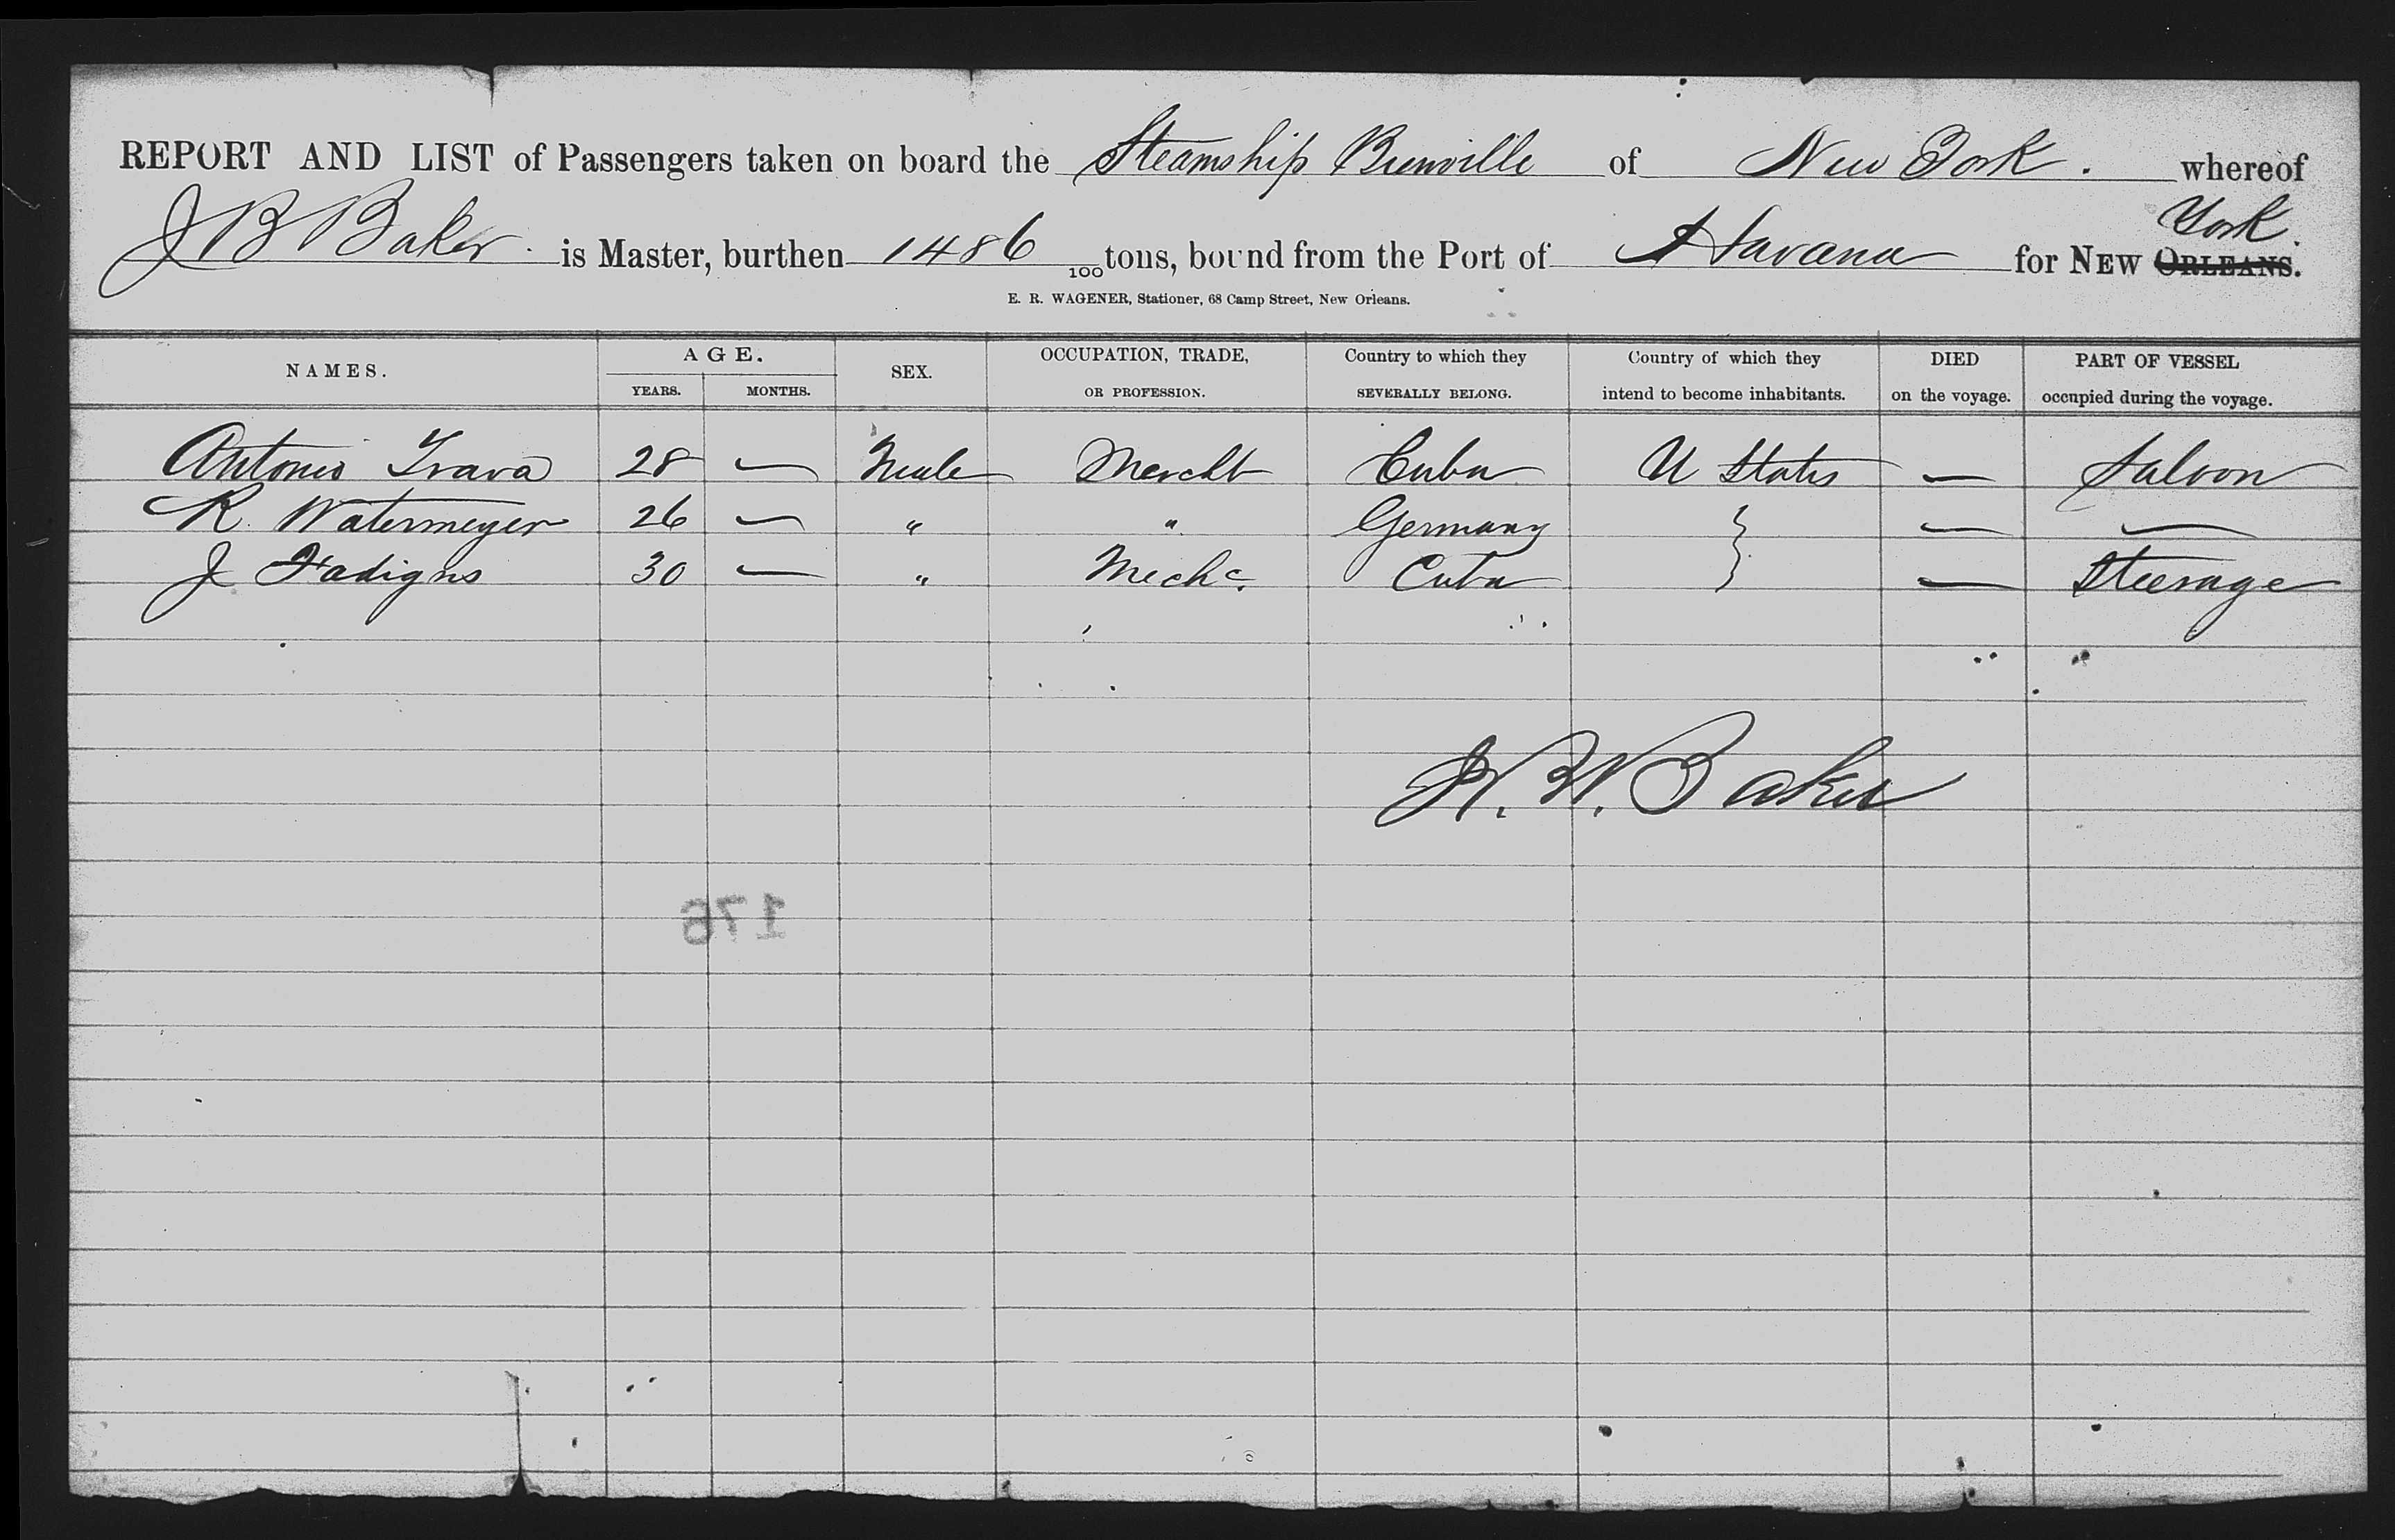 REPORT AND LIST of Passengers taken on board the Steamship Bienville of New York. whereof
York.
J B Baker. is Master, burthen 1486 100 tons, bound from the Port of Havana for NEW ORLEANS.
E. R. WAGENER, Stationer, 68 Camp Street, New Orleans.
NAMES. AGE. SEX. OCCUPATION, TRADE, Country to which they Country of which they DIED PART OF VESSEL
YEARS. MONTHS. OR PROFESSION. SEVERALLY BELONG. intend to become inhabitants. on the voyage. occupied during the voyage.
Antonio Trava 28 — Male Mercht Cuba U States — Saloon
R. Watermeyer 26 — " " Germany } — —
J 30 — " Mechc. Cuba } — Steerage
Baker
176